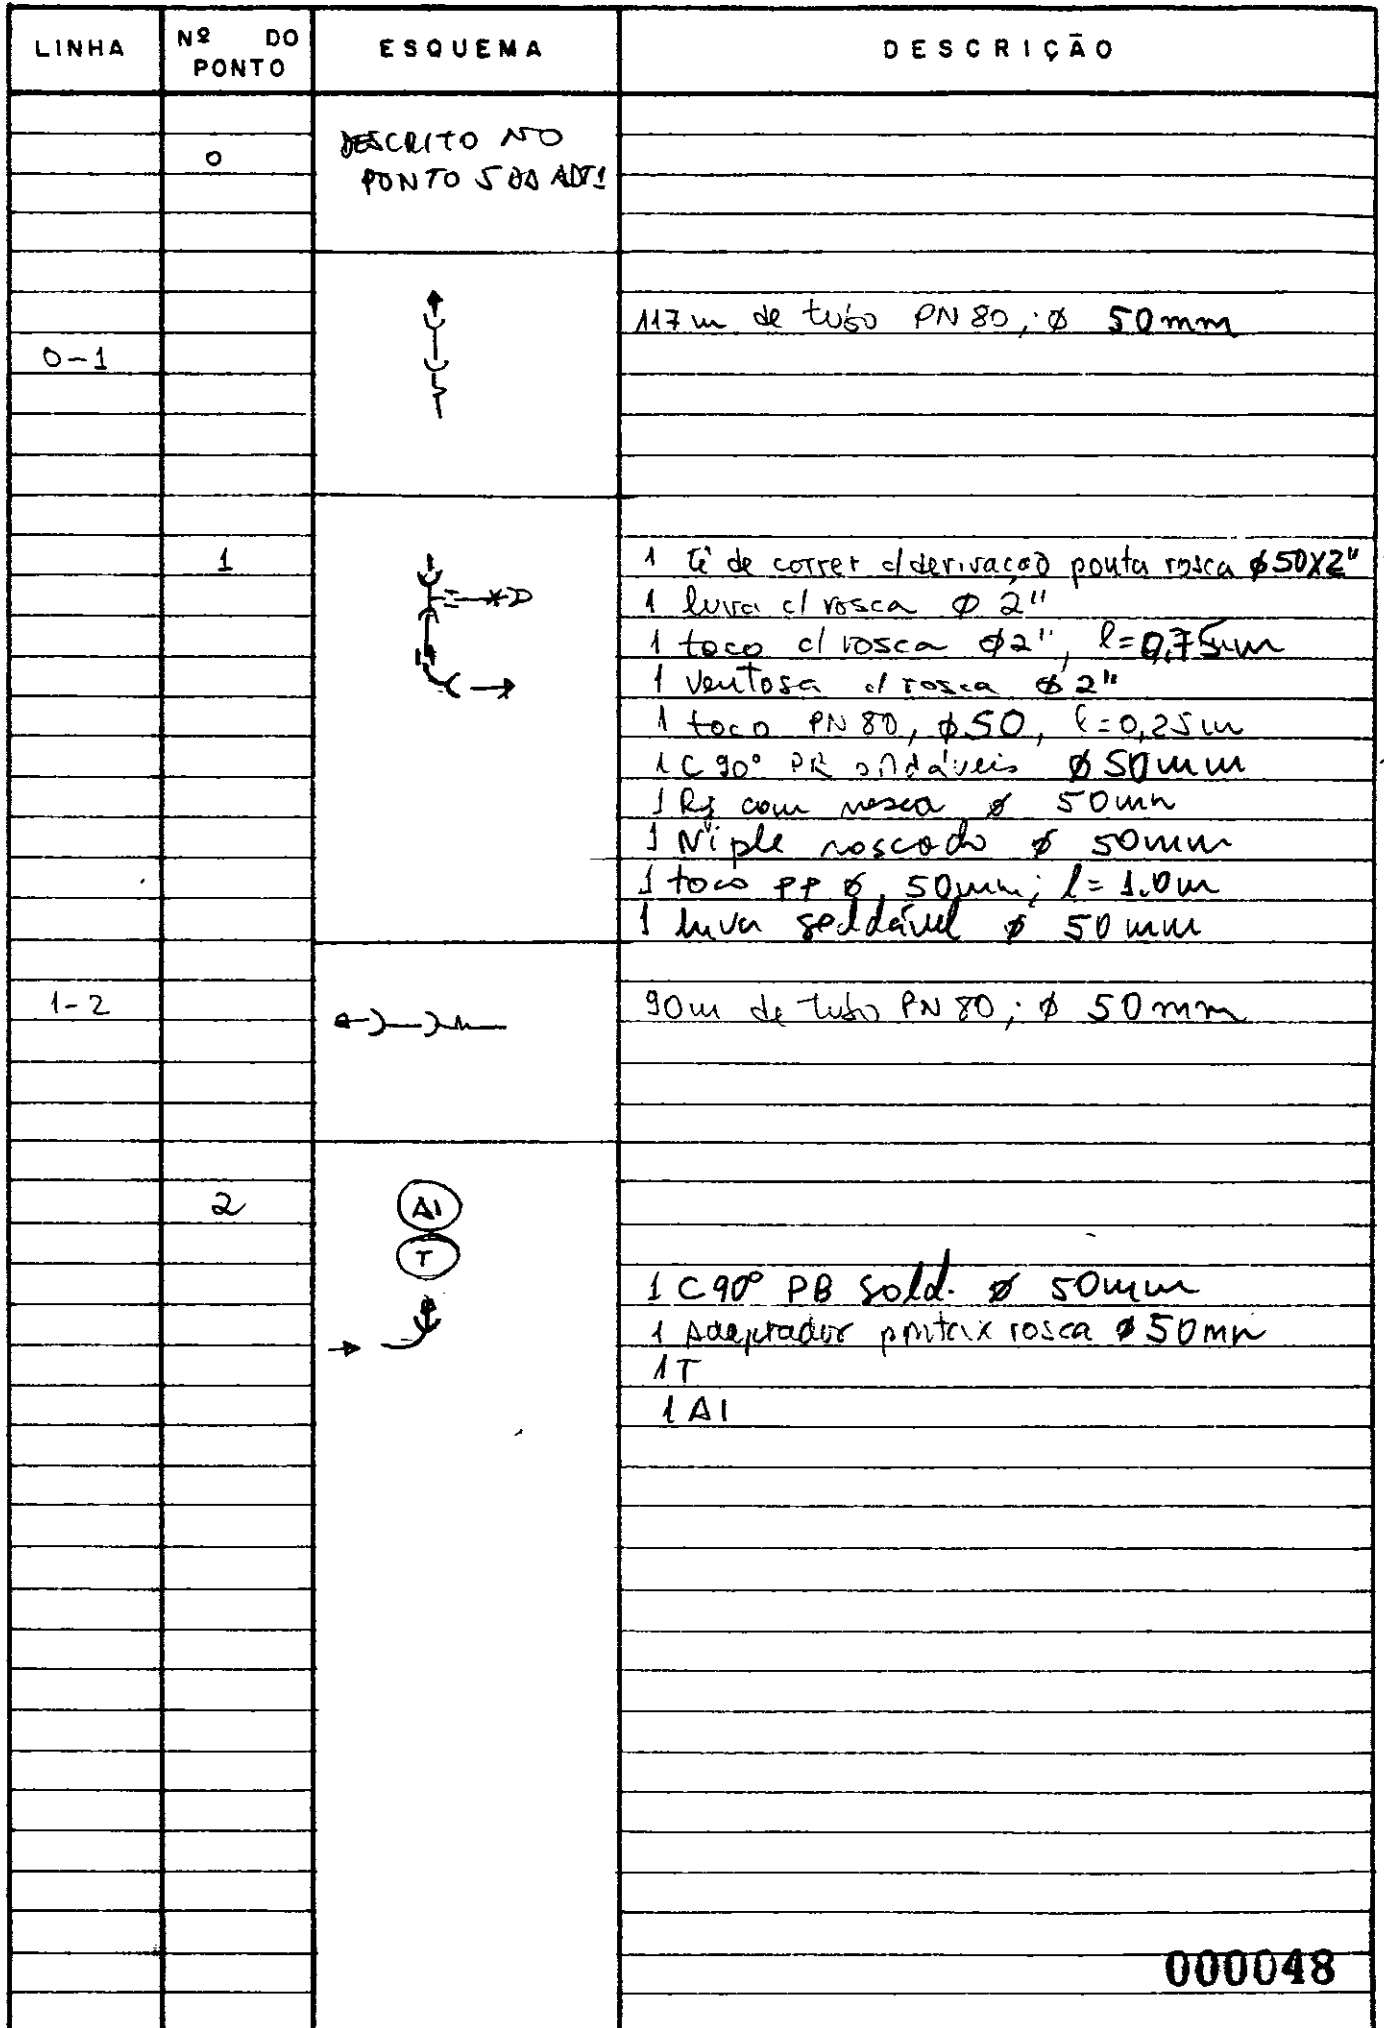 LINHA Nº DO PONTO ESQUEMA DESCRIÇÃO
0 DESCRITO NO
PONTO 5 DA ADT1
117 m de tubo PN 80; ø 50mm
0-1
1 1 Tê de correr c/derivação ponta rosca ø50X2"
1 luva c/ rosca ø 2"
1 toco c/ rosca ø2", l=0,75m
1 ventosa c/ rosca ø 2"
1 toco PN 80, ø50, l=0,25m
1 C 90° soldáveis ø 50mm
1 com rosca ø 50mm
1 Niple roscado ø 50mm
1 toco PP ø 50mm; l= 1.0m
1 luva soldável ø 50mm
1-2 90m de tubo PN 80; ø 50mm
2 AI
T
1 C 90° PB Sold. ø 50mm
1 Adaptador ponta x rosca ø 50mm
1 T
1 AI
000048